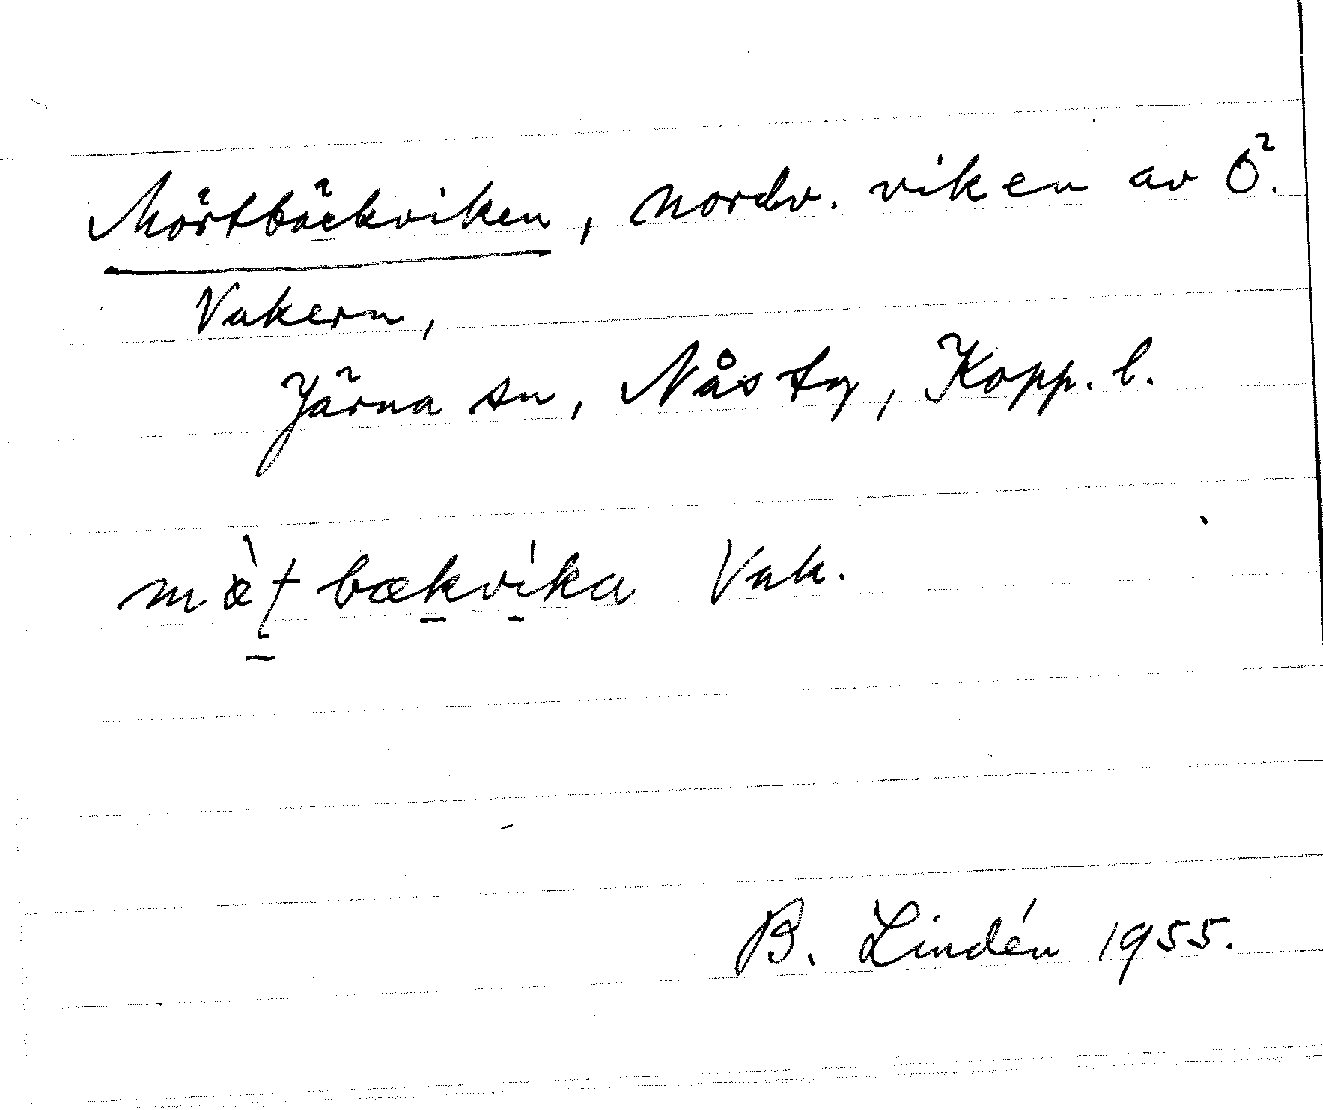 Mörtbäckviken, nordv. viken av Ö.
Vakern,
Järna sn, Nås tg, Kopp. l.
mæ̀t bækvíka Vak.
B. Lindén 1955.